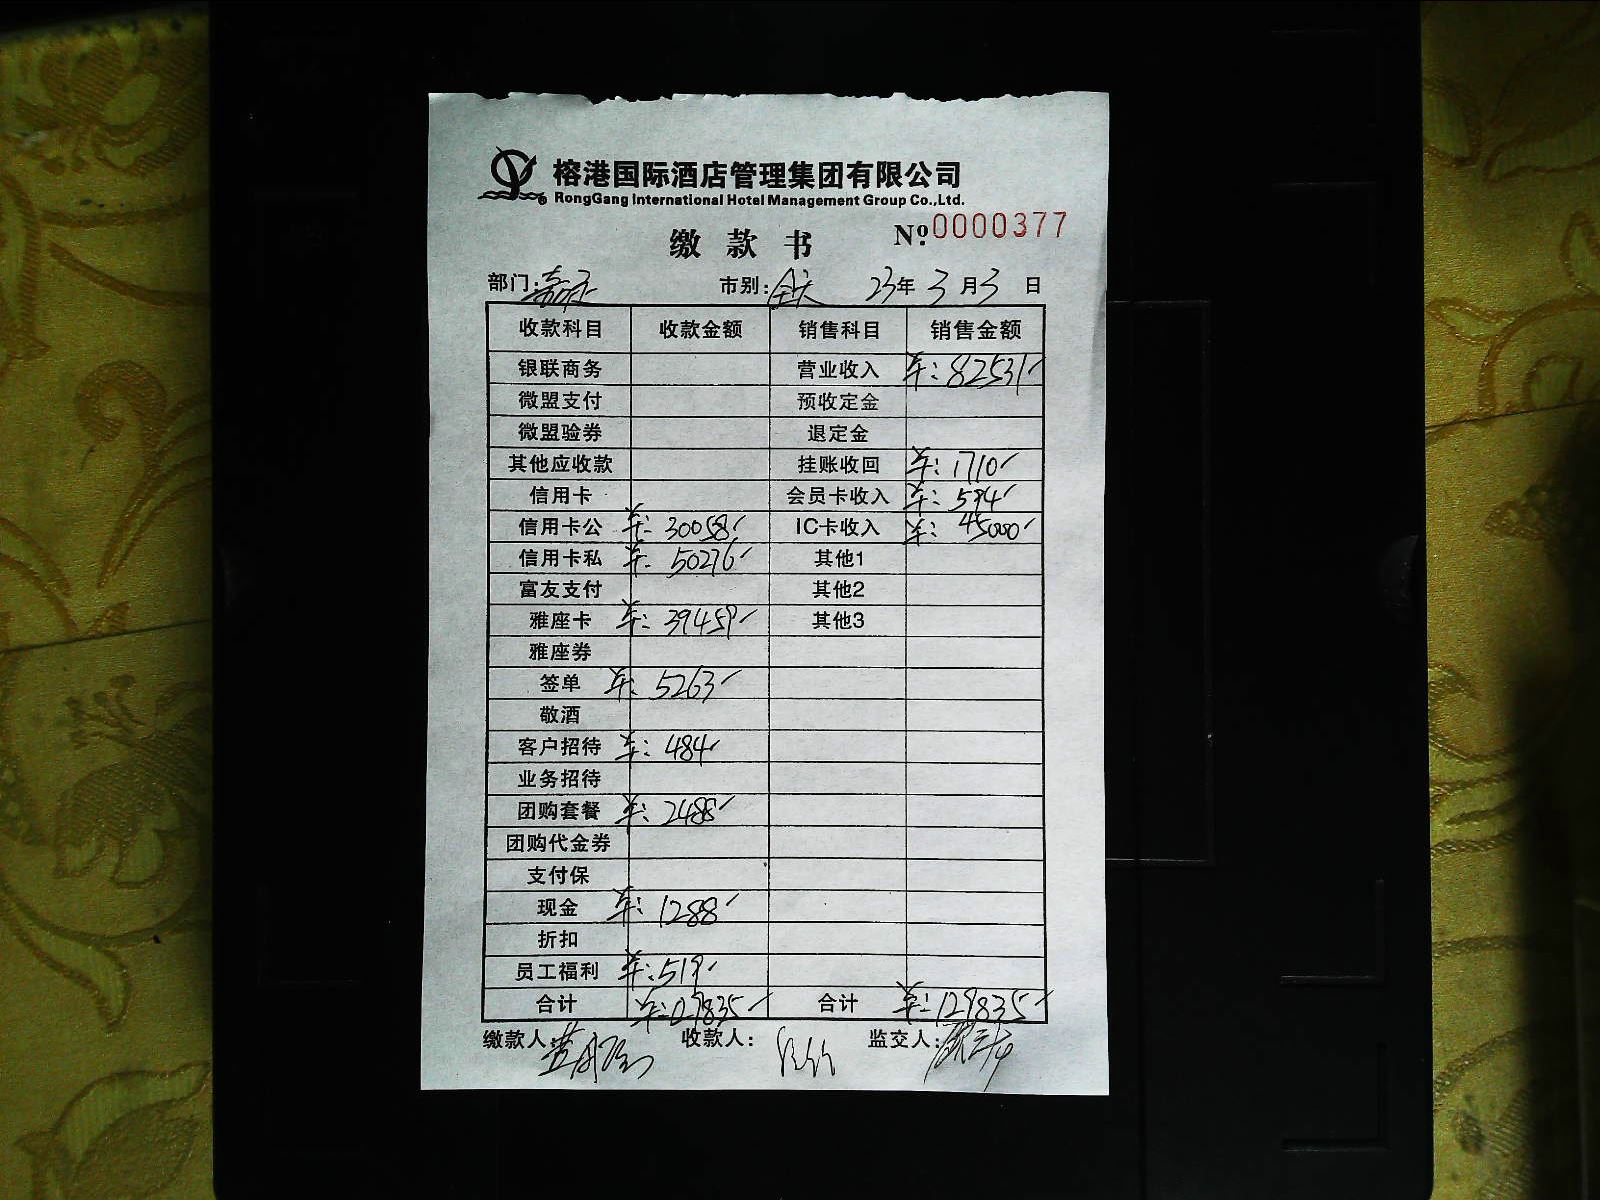 榕港国际酒店管理集团有限公司
RongGang International Hotel Management Group Co.,Ltd.
缴款书 Nº:0000377
部门: 市别:全天 23年3月3日
收款科目 收款金额 销售科目 销售金额
银联商务 营业收入 ¥:82531
微盟支付 预收定金
微盟验券 退定金
其他应收款 挂账收回 ¥:1710
信用卡 会员卡收入 ¥:594
信用卡公 ¥:30058 IC卡收入 ¥:45000
信用卡私 ¥:50276 其他1
富友支付 其他2
雅座卡 ¥:39459 其他3
雅座券
签单 ¥:5263
敬酒
客户招待 ¥:484
业务招待
团购套餐 ¥:2488
团购代金券
支付保
现金 ¥:1288
折扣
员工福利 ¥:519
合计 ¥:129835 合计 ¥:129835
缴款人: 收款人: 监交人: